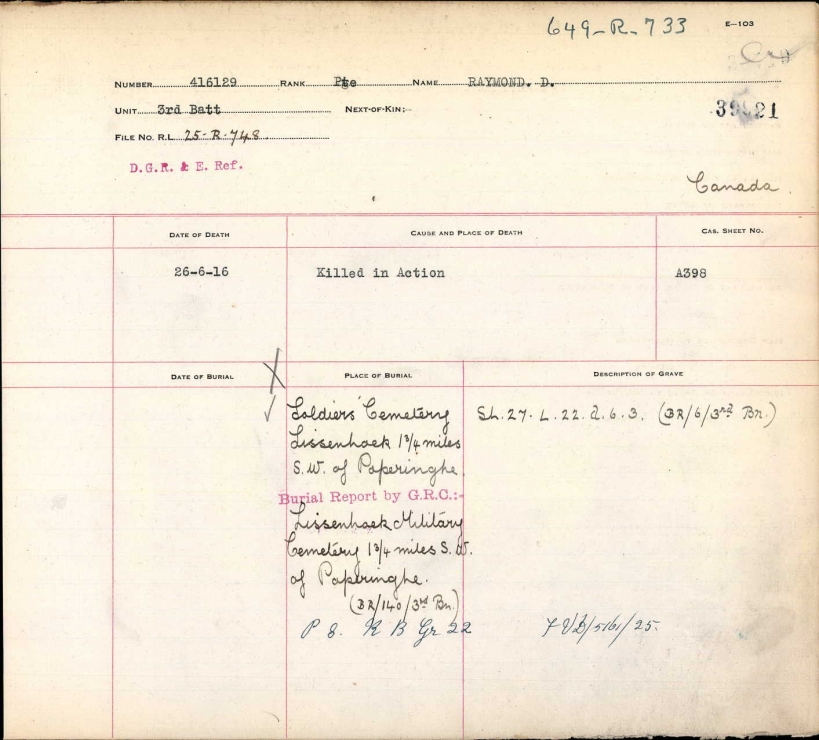 649-R-733
E-103
NUMBER 416129 RANK Pte NAME RAYMOND. D.
UNIT 3rd Batt NEXT-OF-KIN:-
FILE NO. R.L. 25-R-748
D.G.R. & E. Ref.
Canada
DATE OF DEATH CAUSE AND PLACE OF DEATH CAS. SHEET NO.
26-6-16 Killed in Action A398
DATE OF BURIAL PLACE OF BURIAL DESCRIPTION OF GRAVE
Soldiers' Cemetery Sh. 27. L. 22. d. 6. 3. (BR/6/3rd Bn.)
Lissenhoek 1 3/4 miles
S.W. of Poperinghe.
Burial Report by G.R.C.:-
Lissenhoek Military
Cemetery 1 3/4 miles S.W.
of Poperinghe.
(BR/140/3rd Bn.)
P 8. R B Gr 22